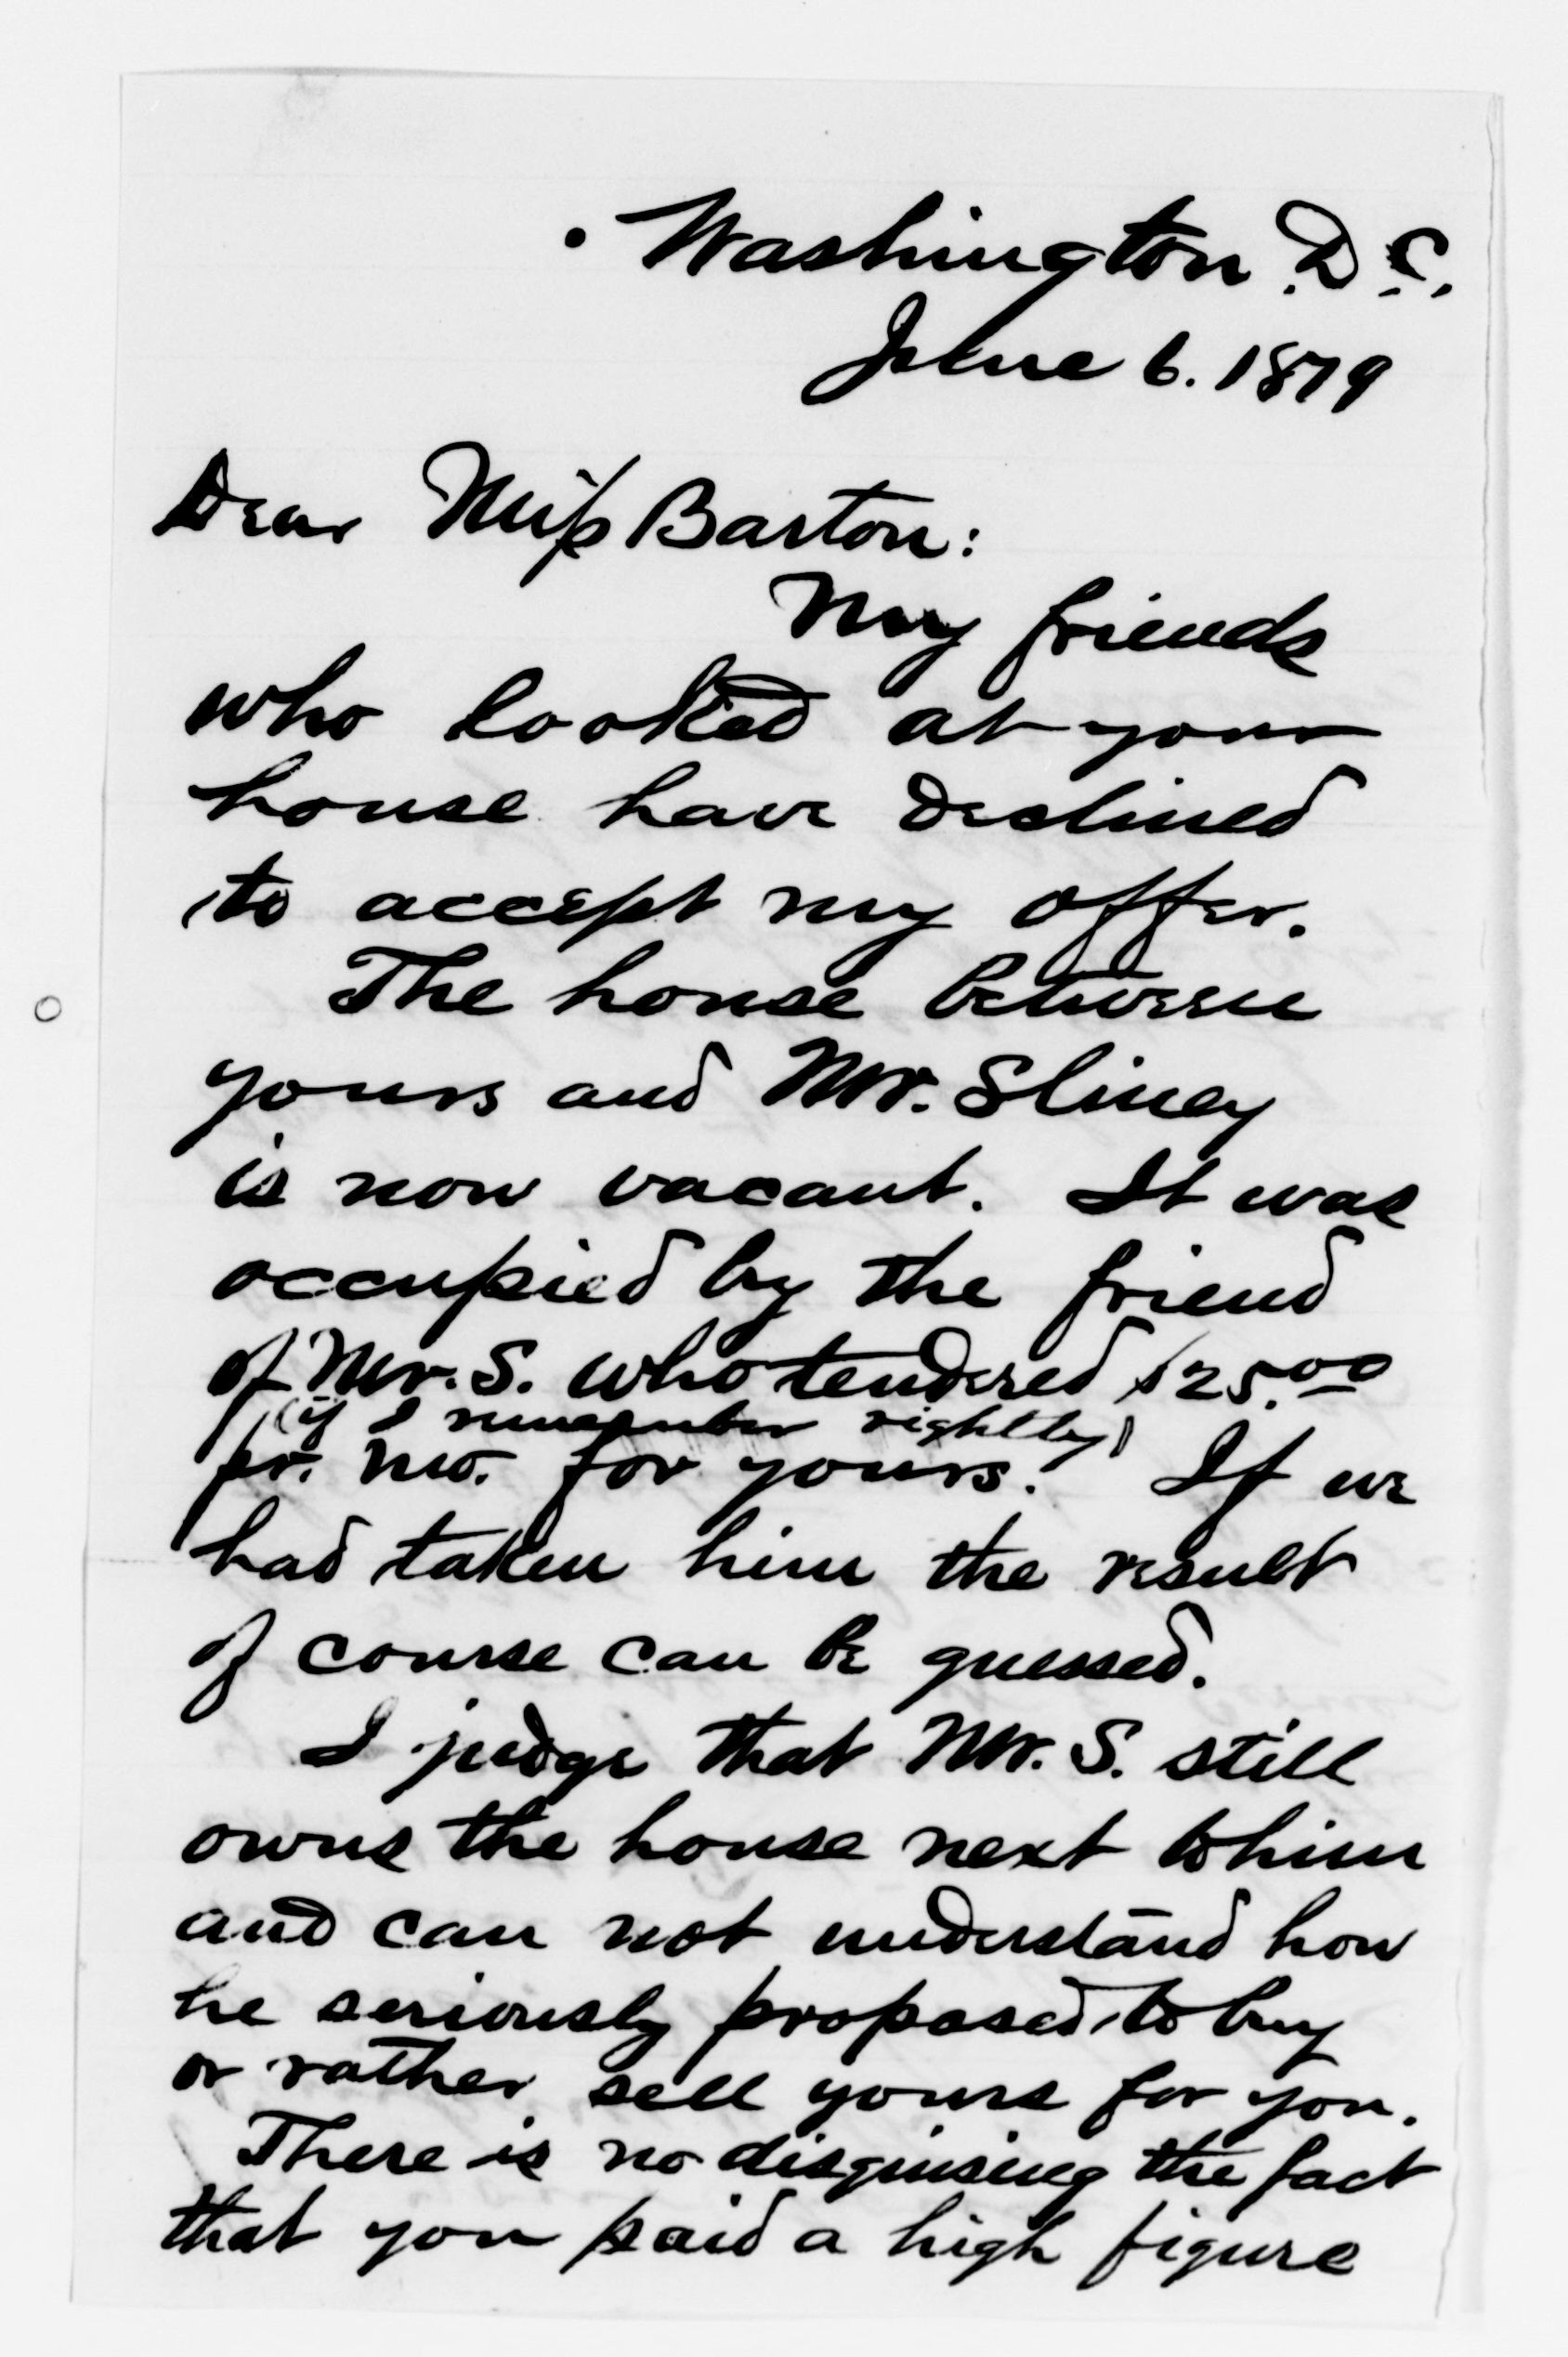 Washington D.C.
June 6. 1879
Dear Miss Barton:
My friends
who looked at your
house have declined
to accept my offer.
The house between
yours and Mr. Sliney
is now vacant. It was
occupied by the friend
of Mr. S. who tendered $25.00
(if I remember rightly)
pr. mo. for yours. If we
had taken him the result
of course can be guessed.
I judge that Mr. S. still
owns the house next to him
and can not understand how
he seriously proposed to buy
or rather sell yours for you.
There is no disguising the fact
that you paid a high figure